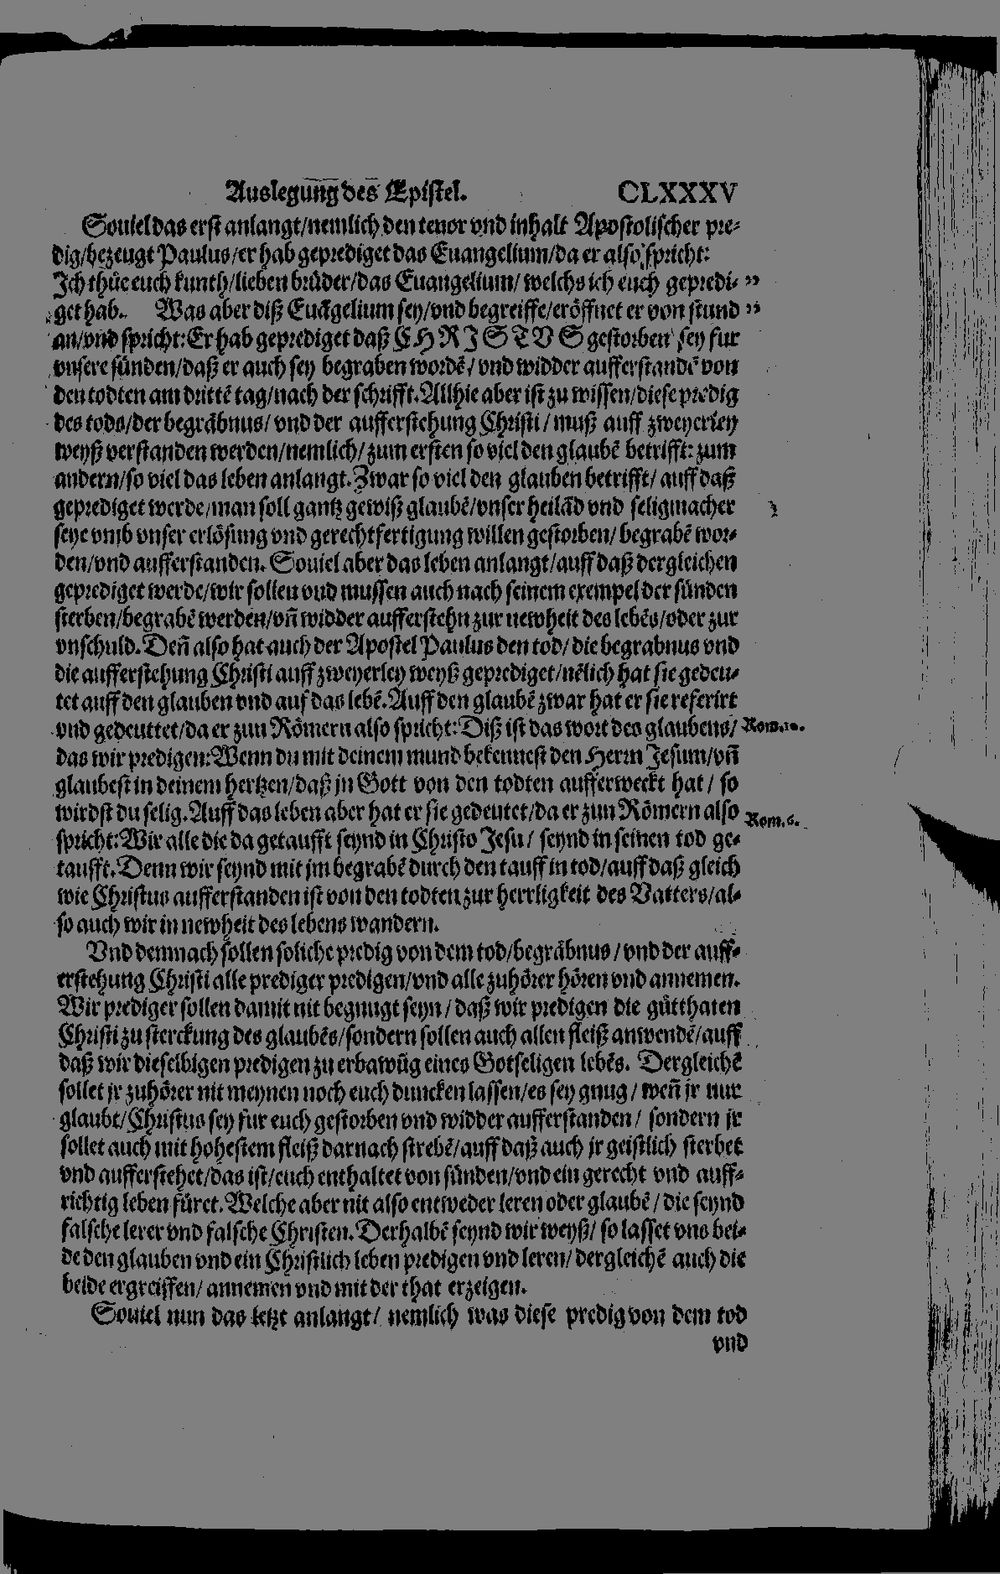 Auslegung des Epistel. CLXXXV
Souiel das erst anlangt/nemlich den tenor vnd inhalt Apostolischer pre-
dig/bezeugt Paulus/er hab geprediget das Euangelium/da er also spricht:
Ich thůe euch kunth/lieben brůder/das Euangelium/ welchs ich euch gepredi- ”
get hab. Was aber diß Euãgelium sey/vnd begreiffe/eröffnet er von stund ”
an/vnd spricht: Er hab geprediget daß CHRISTVS gestorben sey fur
vnsere sünden/daß er auch sey begraben wordẽ/ vnd widder aufferstandẽ von
den todten am drittẽ tag/nach der schrifft. Allhie aber ist zu wissen/diese predig
des tods/der begräbnus/ vnd der aufferstehung Christi/ muß auff zweyerley
weyß verstanden werden/nemlich/zum ersten so viel den glaubẽ betrifft: zum
andern/so viel das leben anlangt. Zwar so viel den glauben betrifft/ auff daß
geprediget werde/man soll gantz gewiß glaubẽ/vnser heilãd vnd seligmacher
seye vmb vnser erlösung vnd gerechtfertigung willen gestorben/ begrabẽ wor-
den/vnd aufferstanden. Souiel aber das leben anlangt/auff daß dergleichen
geprediget werde/wir sollen vnd mussen auch nach seinem exempel der sünden
sterben/begrabẽ werden/vñ widder aufferstehn zur newheit des lebẽs/oder zur
vnschuld. Deñ also hat auch der Apostel Paulus den tod/ die begrabnus vnd
die aufferstehung Christi auff zweyerley weyß geprediget/nẽlich hat sie gedeu-
tet auff den glauben vnd auf das lebẽ. Auff den glaubẽ zwar hat er sie referirt
vnd gedeuttet/da er zun Römern also spricht: Diß ist das wort des glaubens/ Rom.10.
das wir predigen: Wenn du mit deinem mund bekennest den Herrn Jesum/vñ
glaubest in deinem hertzen/daß jn Gott von den todten aufferweckt hat/ so
wirdst du selig. Auff das leben aber hat er sie gedeutet/da er zun Römern also
spricht: Wir alle die da getaufft seynd in Christo Jesu/ seynd in seinen tod ge- Rom.6.
taufft. Denn wir seynd mit jm begrabẽ durch den tauff in tod/auff daß gleich
wie Christus aufferstanden ist von den todten zur herrligkeit des Vatters/al-
so auch wir in newheit des lebens wandern.
Vnd demnach sollen soliche predig von dem tod/begräbnus/ vnd der auff-
erstehung Christi alle prediger predigen/vnd alle zuhörer hören vnd annemen.
Wir prediger sollen damit nit begnugt seyn/ daß wir predigen die gůtthaten
Christi zu sterckung des glaubẽs/sondern sollen auch allen fleiß anwendẽ/auff
daß wir dieselbigen predigen zu erbawũg eines Gotseligen lebẽs. Dergleichẽ
sollet jr zuhörer nit meynen noch euch duncken lassen/es sey gnug/ weñ jr nur
glaubt/Christus sey fur euch gestorben vnd widder aufferstanden/ sondern jr
sollet auch mit hohestem fleiß darnach strebẽ/auff daß auch jr geistlich sterbet
vnd aufferstehet/das ist/euch enthaltet von sünden/vnd ein gerecht vnd auff-
richtig leben füret. Welche aber nit also entweder leren oder glaubẽ/ die seynd
falsche lerer vnd falsche Christen. Derhalbẽ seynd wir weyß/ so lasset vns bei-
de den glauben vnd ein Christlich leben predigen vnd leren/ dergleichẽ auch die
beide ergreiffen/ annemen vnd mit der that erzeigen.
Souiel nun das letzt anlangt/ nemlich was diese predig von dem tod
vnd